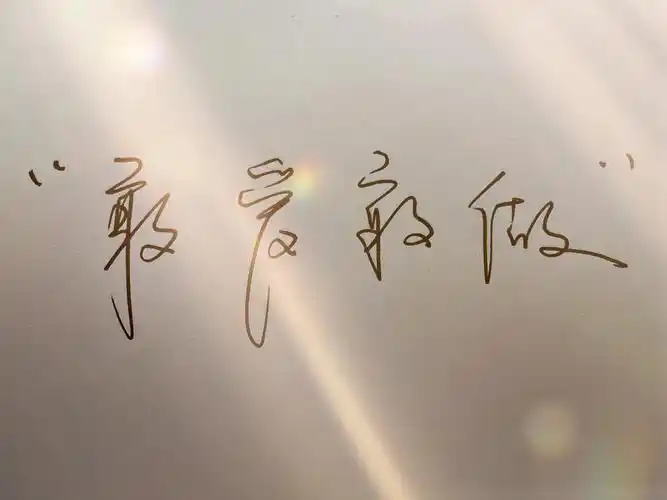 “敢爱敢做”